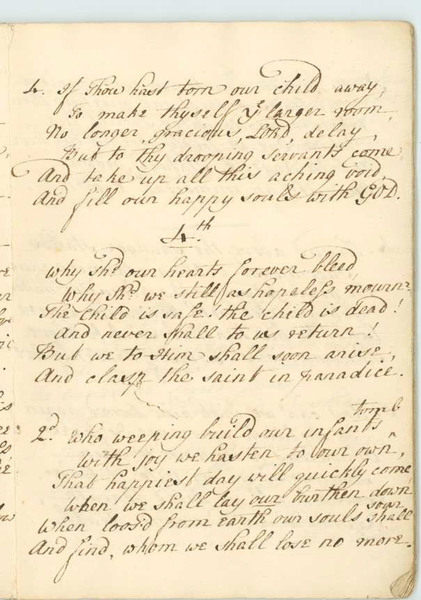 4. If Thou hast torn our child away,
To make thyself yͤ larger room,
No longer, gracious, Lord, delay,
But to thy drooping servants come,
And take up all this aching void,
And fill our happy souls with GOD.
4.th
Why shd. our hearts forever bleed,
Why shd. we still as hopeless mourn?
The child is safe! the child is dead!
And never shall to us return!
But we to Him shall soon arise,
And clasp the saint in paradice.
2d. Who weeping build our infants tomb
With joy we hasten to our own,
That happiest day will quickly come
When we shall lay our burthen down
When loos'd from earth our souls shall soar
And find, whom we shall lose no more.